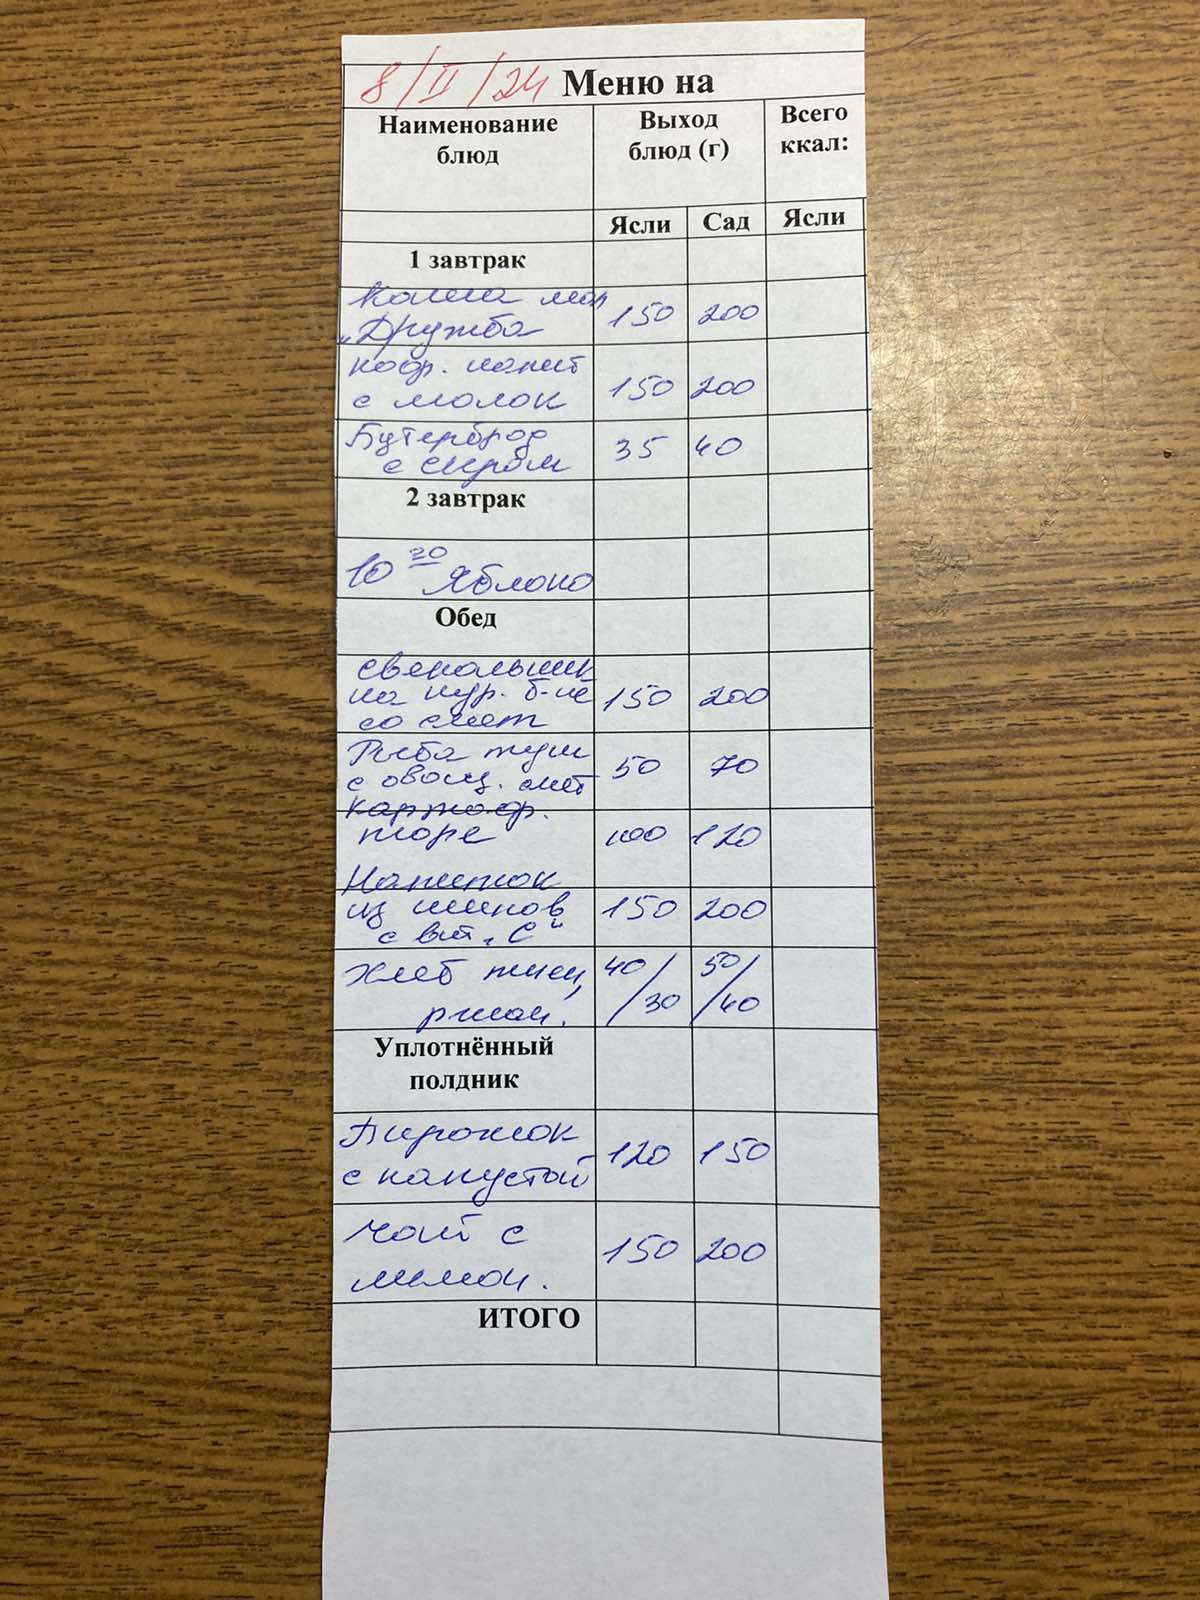 8/II/24 Меню на
Наименование Выход Всего
блюд блюд (г) ккал:
Ясли Сад Ясли
1 завтрак
Каша мол
"Дружба 150 200
коф. напит
с молок 150 200
Бутерброд 35 40
с сыром
2 завтрак
10 30 Яблоко
Обед
свекольник
на кур. б-не 150 200
со смет
Рыба туш 50 70
с овощ. смет
картоф.
пюре 100 120
Напиток
из шипов 150 200
с вит "С"
Хлеб пшен, 40/30 50/40
ржан.
Уплотнённый
полдник
Пирожок
с капустой 120 150
чай с 150 200
лимон.
ИТОГО